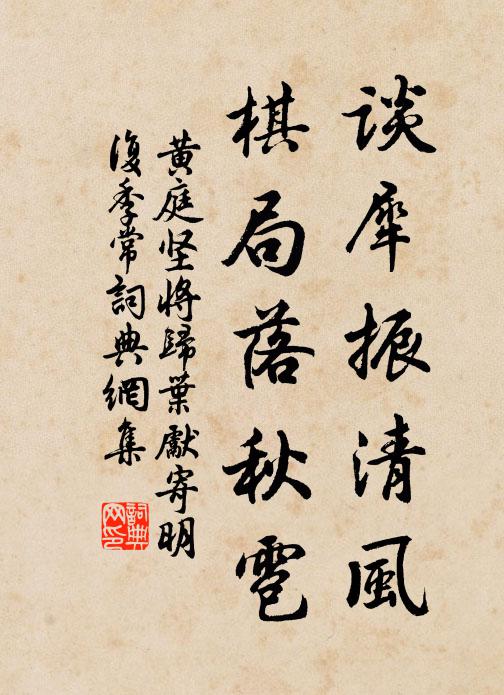 談犀振清風
棋局落秋雹
黄庭坚將歸葉獻寄明
復季常詞典網集
詞典网印